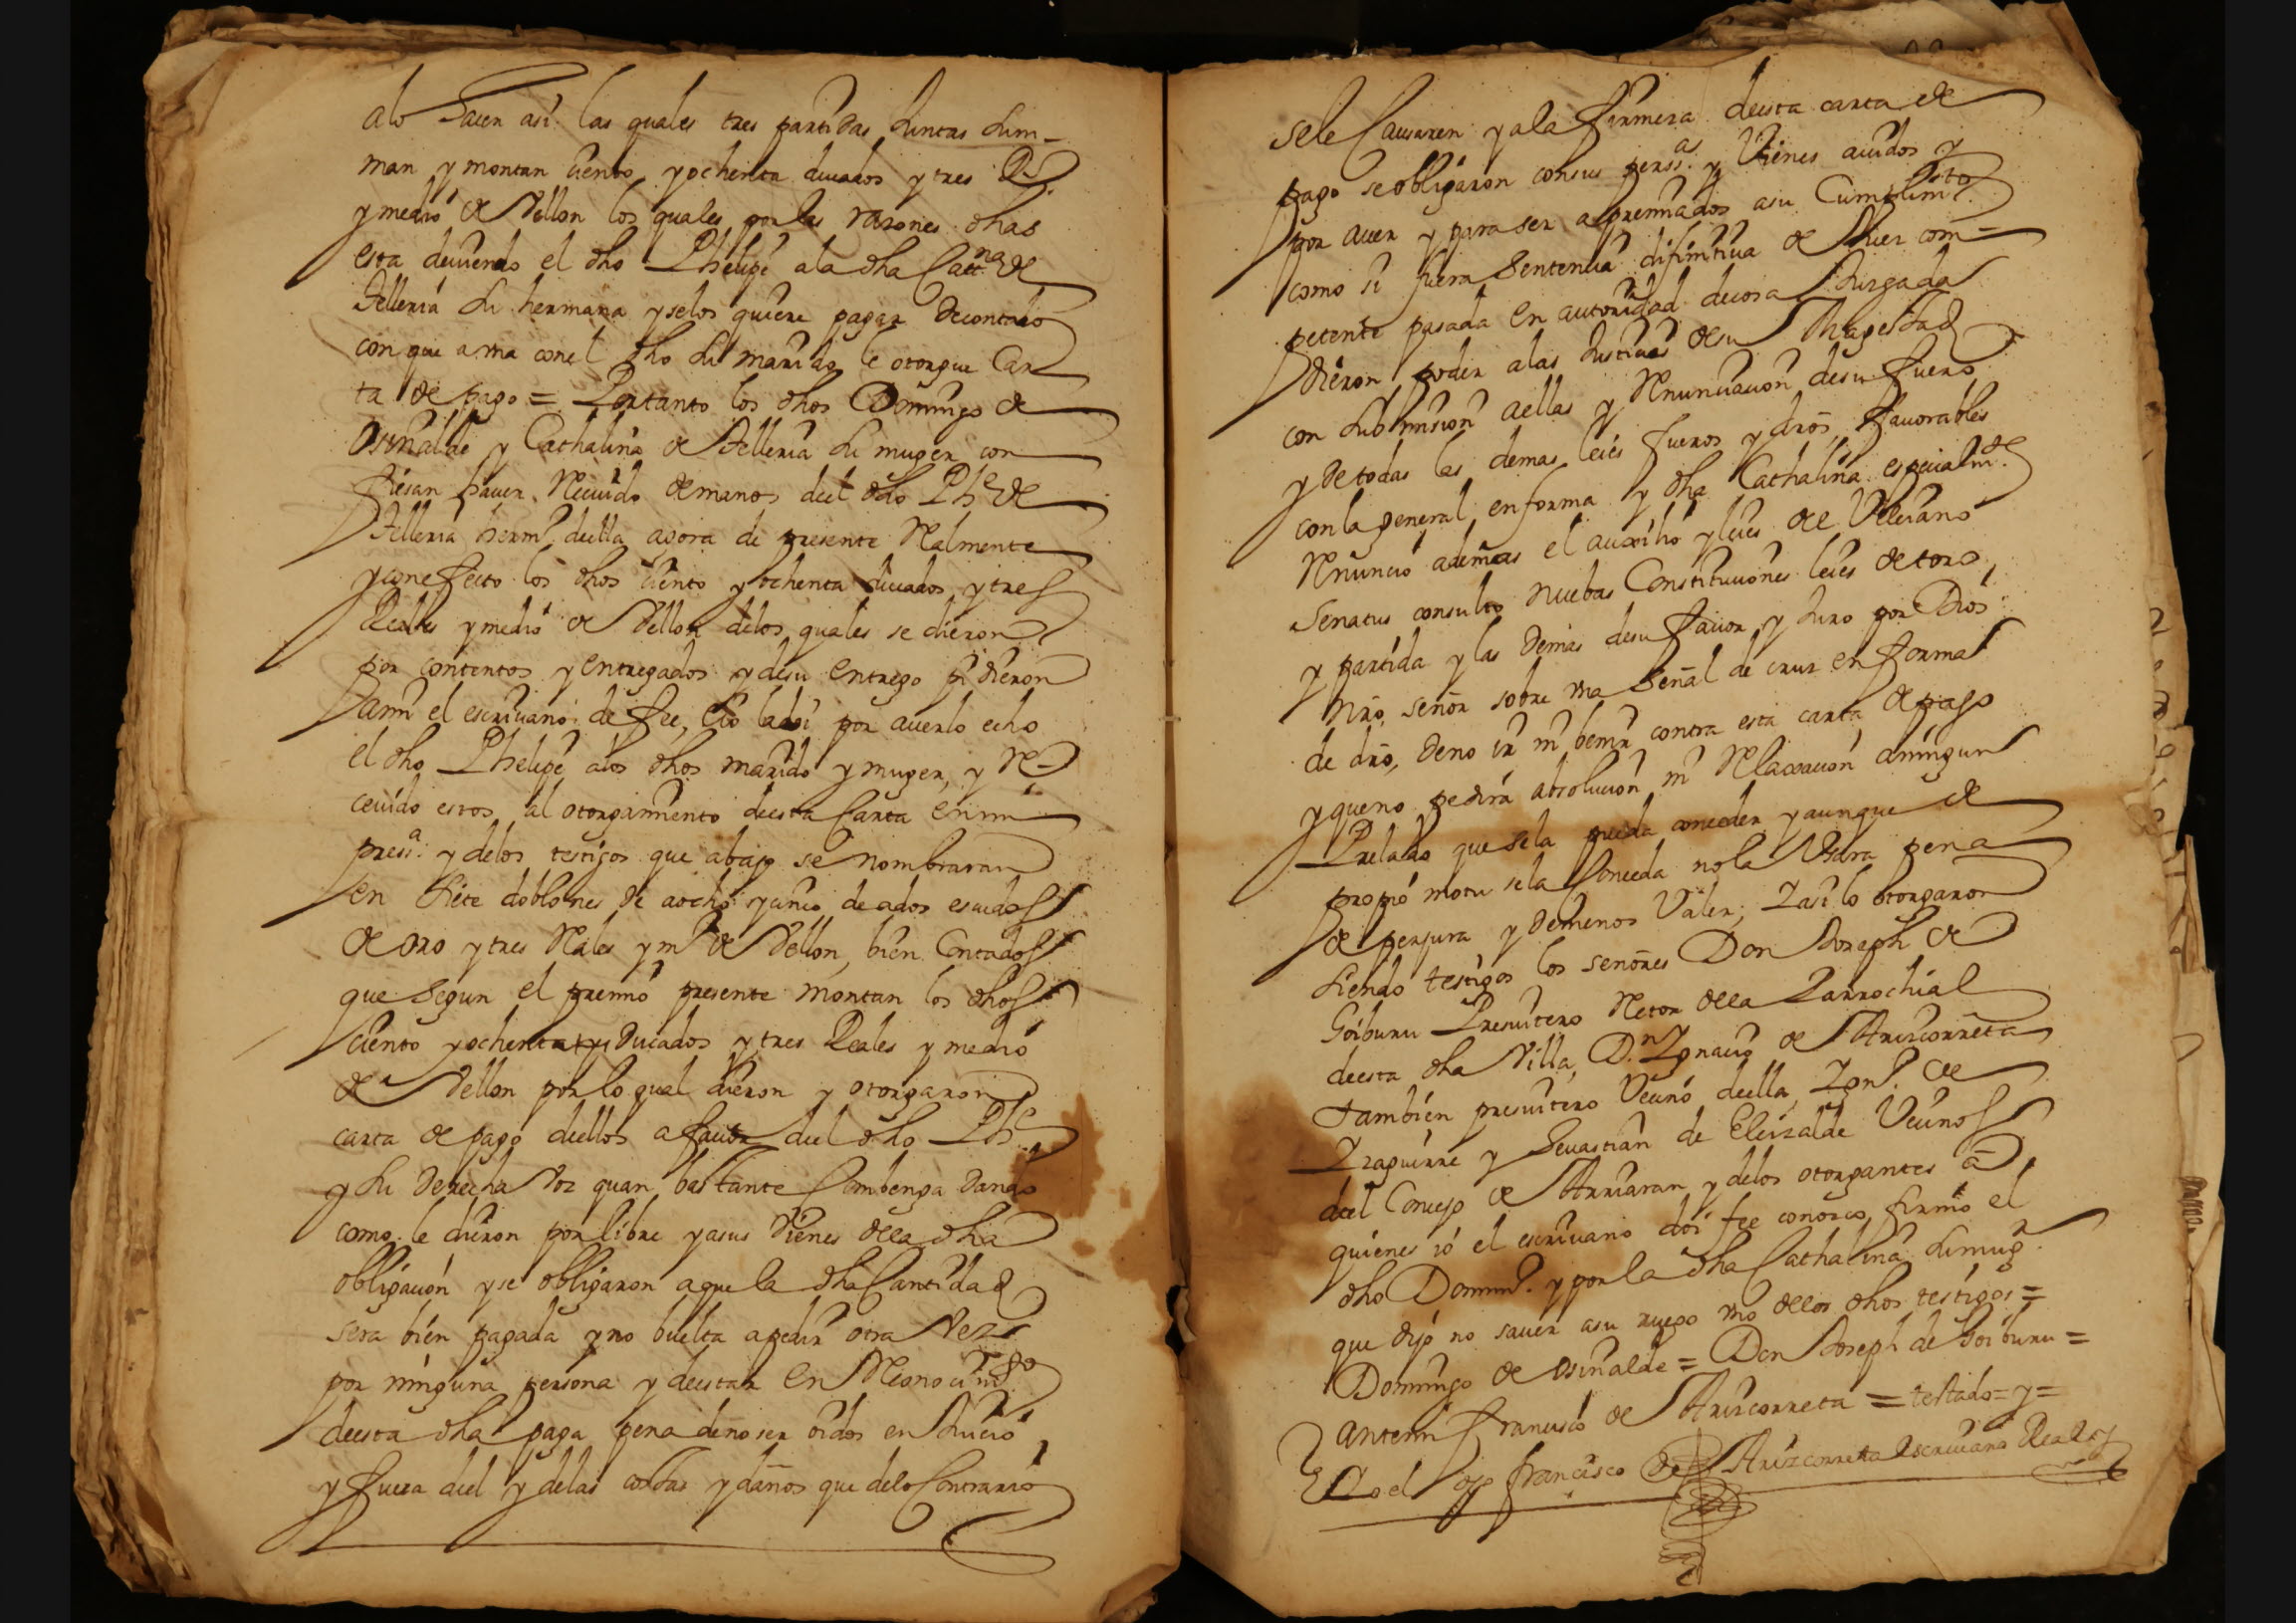 alo hacer asi. las quales tres partidas Juntas sum-
man y montan ciento yochenta ducados y tres Rs.
ymedio de Vellon los quales por las razones dhas
esta deuiendo el dho Phelipe ala dha Cat.na de
Telleria su hermana yselos quiere pagar decontado
con que a vna conel dho su marido le otorgue Car
ta de pago = Portanto los dhos Domingo de
Osinalde y Cathalina de Telleria su muger con
fiesan hauer Reciuido demanos del dho Phe de
Telleria herm.o della agora de presente Realmente
yconefecto los dhos ciento yochenta ducados ytres
Reales ymedio de Vellon delos quales se dieron
por contentos yentregados ydesu entrego pidieron
ami el escriuano de fee, Eio ladoi por auerlo echo
el dho Phelipe alos dhos marido ymuger, y Re-
ceuido estos al otorgamiento deesta Carta en mi
press.a y delos testigos que abajo se nombraran
en siete doblones de aocho yunco de ados escudos
de oro ytres Reales ym.o de Vellon, bien Contados
que segun el premio presente montan los dhos
ciento yochenta y Ducados ytres Reales ymedio
de Vellon por lo qual dieron y otorgaron
carta de pago dellos afauor del dho Phe
y su derecha Voz quan bastante Conbenga dando
como le dieron por libre yasus Vienes della dha
obligacion yse obligaron aque la dha Cantidad
sera bien pagada yno buelta apedir otra Vez
por ninguna persona y deestar en Reconocim.to
deesta dha paga pena denoser oidos en Juicio
y fuera del y delas costas ydaños que delo Contrario
sele Causaren yala firmeza deesta carta de
pago seobligaron consus perss.as y Vienes auidos y
por auer y para ser apremiados asu Cumplim.to
como si fuera Sentencia difinitiua de Juez com-
petente pasada en autoridad decosa Juzgada
dieron poder alas Justicias desu Magestad
con submision aellas y Renunciacion desu fuero
y detodas las demas leies fueros ydros. fauorables
conla general enforma y dha Cathalina especialm.te
Renuncio ademas el auxilio yleies de Veleiano
Senatus consulto nuebas Constituciones leies detoro,
y partida y las demas desu fauor y Juro por Dios
nro. señor sobre vna Señal de cruz en forma
de dro, deno ir ni benir contra esta carta de pago
yqueno pedira absolucion ni Relaxacion aningun
Prelado que sela pueda conceder yaunque de
propio motu sela Conceda nola Vsara pena
de perjura y demenos Valer; Yasi lo otorgaron
siendo testigos los señores Don Joseph de
Goiburu Presuitero Retor dela Parrochial
deesta dha Villa, D.n Ygnacio de Arizcorreta
tambien presuitero Vecino della, Ygn.o de
Yraguirre y Seuastian de Eleizalde Vecinos
del Concejo de Arriaran y delos otorgantes a
quienes io el escriuano doi fee conozco, firmo el
dho Doming.o y por la dha Cathalina su mug.r
que dijo no sauer asu ruego vno delos dhos testigos =
Domingo de Osinalde = Don Joseph de Goiburu =
antemi Francisco de Arizcorreta = testado = y =
Yo el dho francisco de Arizcorreta Escriuano Real